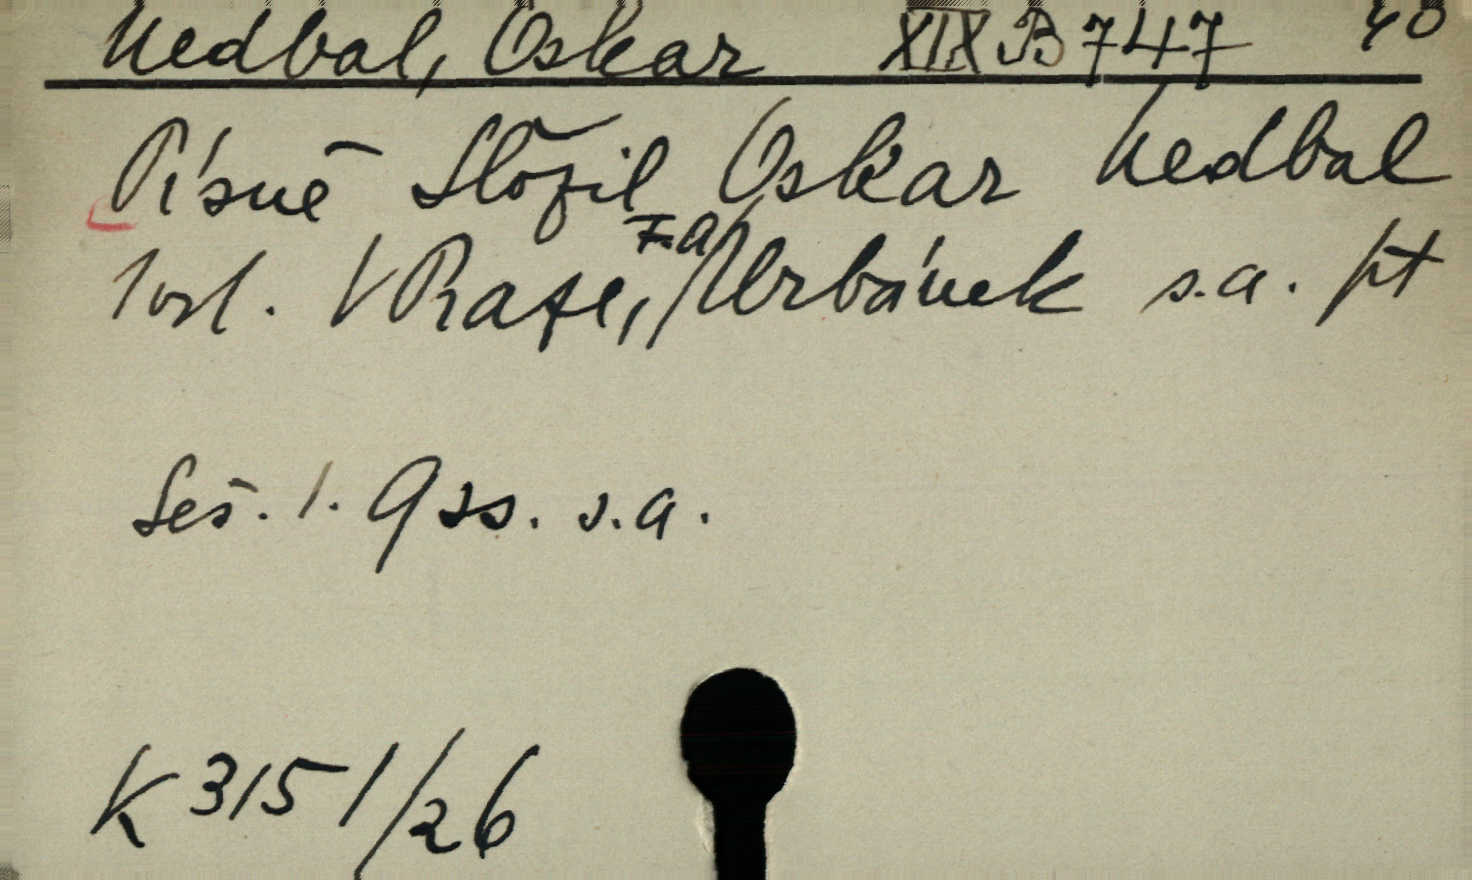 Nedbal, Oskar XIX B 747 40
Písně Složil Oskar Nedbal
1 vol. V Praze, F.A. Urbánek s.a. pt
Seš. 1. 9 ss. s.a.
K 3151/26